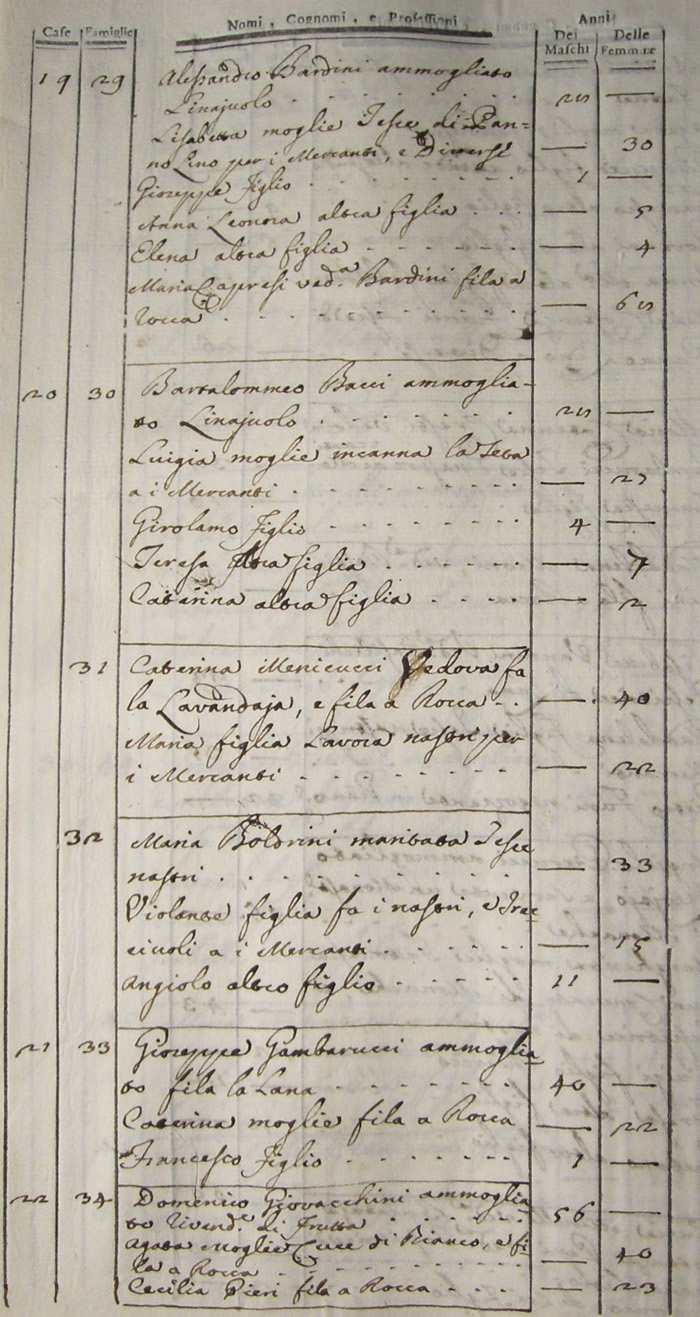 Nomi, Cognomi, e Professioni Anni
Case Famiglie Dei Maschi Delle Femmine
19 29 Alessandro Bardini ammogliato
Linajuolo . . . . . . 25 —
Lisabetta moglie Tesse di Pan=
no Lino per i Mercanti, e Diversi — 30
Gioseppe figlio . . . . . . 1 —
Anna Leonora altra figlia . . . — 5
Elena altra figlia . . . . . — 4
Maria Capresi ved.a Bardini fila a
Rocca . . . . . . — 65
20 30 Bartalommeo Bacci ammoglia-
to Linajuolo . . . . . . 25 —
Luigia moglie incanna la Seta
a i Mercanti . . . . . . — 27
Girolamo figlio . . . . . . 4 —
Teresa altra figlia . . . . . — 7
Caterina altra figlia . . . . — 2
31 Caterina Menicucci Vedova fa
la Lavandaja, e fila a Rocca . . — 40
Maria figlia Lavora nastri per
i Mercanti . . . . . . — 22
32 Maria Boldrini maritata Tesse
nastri . . . . . . — 33
Violante figlia fa i nastri, e
a i Mercanti . . . . . — 15
Angiolo altro figlio . . . . 11 —
21 33 Gioseppe Gambarucci ammoglia
to fila la Lana . . . . . 40 —
Caterina moglie fila a Rocca — 22
Francesco figlio . . . . . . 1 —
22 34 Domenico Giovacchini ammoglia
to Rivend.e di Frutta . . . . 56 —
Agata Moglie Cuce di Bianco, e fi-
la a Rocca . . . . . . — 40
Cecilia Pieri fila a Rocca . . . — 23